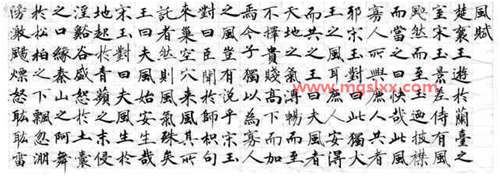 風賦
楚襄王遊於蘭臺之
宮宋玉景差侍有風
颯然而至王迺披襟
而當之曰快哉此風
寡人所與庶人共者
邪宋玉對曰此獨大
王之風耳庶人安得
而共之王曰夫風者
天地之氣溥暢而至
不擇貴賤高下而加
焉今子獨以為寡人
之風豈有說乎宋玉
對曰臣聞於師枳句
來巢空穴來風其所
託者然則風氣殊矣
王曰夫風始安生哉
宋玉對曰夫風生於
地起於青蘋之末侵
淫谿谷盛怒於土囊
之口緣泰山之阿舞
於松柏之下飄忽淜
滂激颺熛怒耾耾雷
www.mgslxx.com